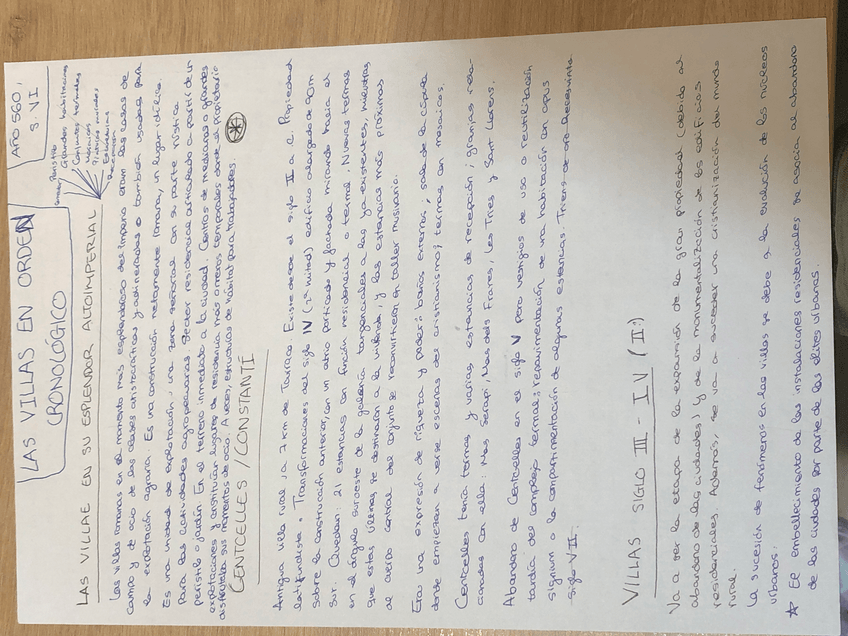 LAS VILLAS EN ORDEN
CRONOLÓGICO
AÑO 560,
S. VI
Peristilo
Grandes habitaciones
Conjuntos termales
Mosaicos
Pinturas murales
Esculturas
LAS VILLAE EN SU ESPLENDOR ALTOIMPERIAL
Las villas romanas en el momento más esplendoroso del Imperio eran las casas de
campo y de ocio de las clases aristocráticas y adineradas o también usadas para
la explotación agraria. Es una construcción netamente romana, un lugar idílico.
Es una unidad de explotación: una zona señorial con su parte rústica
para las actividades agropecuarias. Sector residencial articulado a partir de un
peristilo o jardín. En el terreno inmediato a la ciudad. Centros de medianas o grandes
explotaciones y constituían lugares de residencia más o menos temporales donde el propietario
disfrutaba sus momentos de ocio. A veces, estructuras de hábitat para trabajadores.
CENTCELLES / CONSTANTÍ
Antigua villa rural, a 7 km de Tarraco. Existe desde el siglo II a.C. Propiedad
latifundista. Transformaciones del siglo IV (2ª mitad) edificio alargado de 90m
sobre la construcción anterior, con un atrio porticado y fachada mirando hacia el
sur. Quedan: 21 estancias con función residencial o termal. Nuevas termas
en el ángulo suroeste de la galería tangenciales a las ya existentes, mientras
que estas últimas se destinaron a la vivienda y las estancias más próximas
al acceso central del conjunto se reconvirtieron en taller musivario.
Era una expresión de riqueza y poder: baños externos; sala de la cúpula
donde empiezan a verse escenas del cristianismo; termas con mosaicos.
Centcelles tenía termas y varias estancias de recepción; granjas rela-
cionadas con ella: Mas Serapi, Mas dels Frares, Les Tries y Sant Llorens.
Abandono de Centcelles en el siglo V pero vestigios de uso o reutilización
tardía del complejo termal: repavimentación de una habitación con opus
signum o la compartimentación de algunas estancias. Triens de oro Recesvinto
siglo VII.
VILLAS SIGLO III - IV (II:)
Va a ser la etapa de la expansión de la gran propiedad (debido al
abandono de las ciudades) y de la monumentalización de los edificios
residenciales. Además, se va a suceder una cristianización del mundo
rural.
La sucesión de fenómenos en las villas se debe a la evolución de los núcleos
urbanos:
* El embellecimiento de las instalaciones residenciales se asocia al abandono
de las ciudades por parte de las élites urbanas.